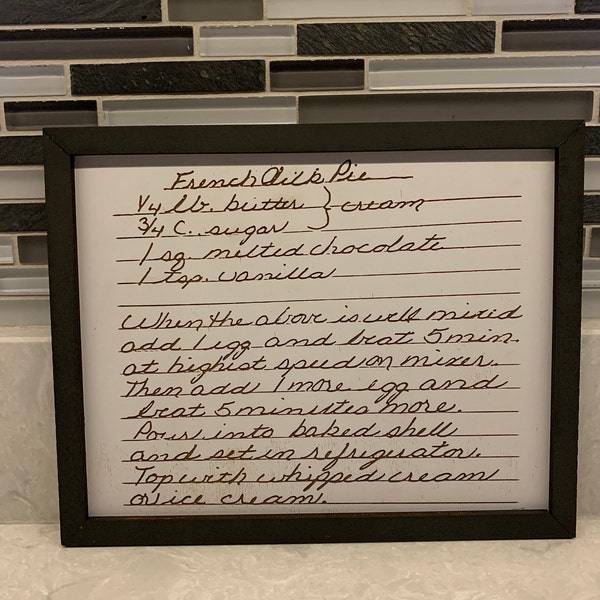 French Silk Pie
1/4 lb. butter } cream
3/4 C. sugar
1 sq. melted chocolate
1 tsp. vanilla
When the above is well mixed
add 1 egg and beat 5 min.
at highest speed on mixer.
Then add 1 more egg and
beat 5 minutes more.
Pour into baked shell
and set in refrigerator.
Top with whipped cream
or ice cream.